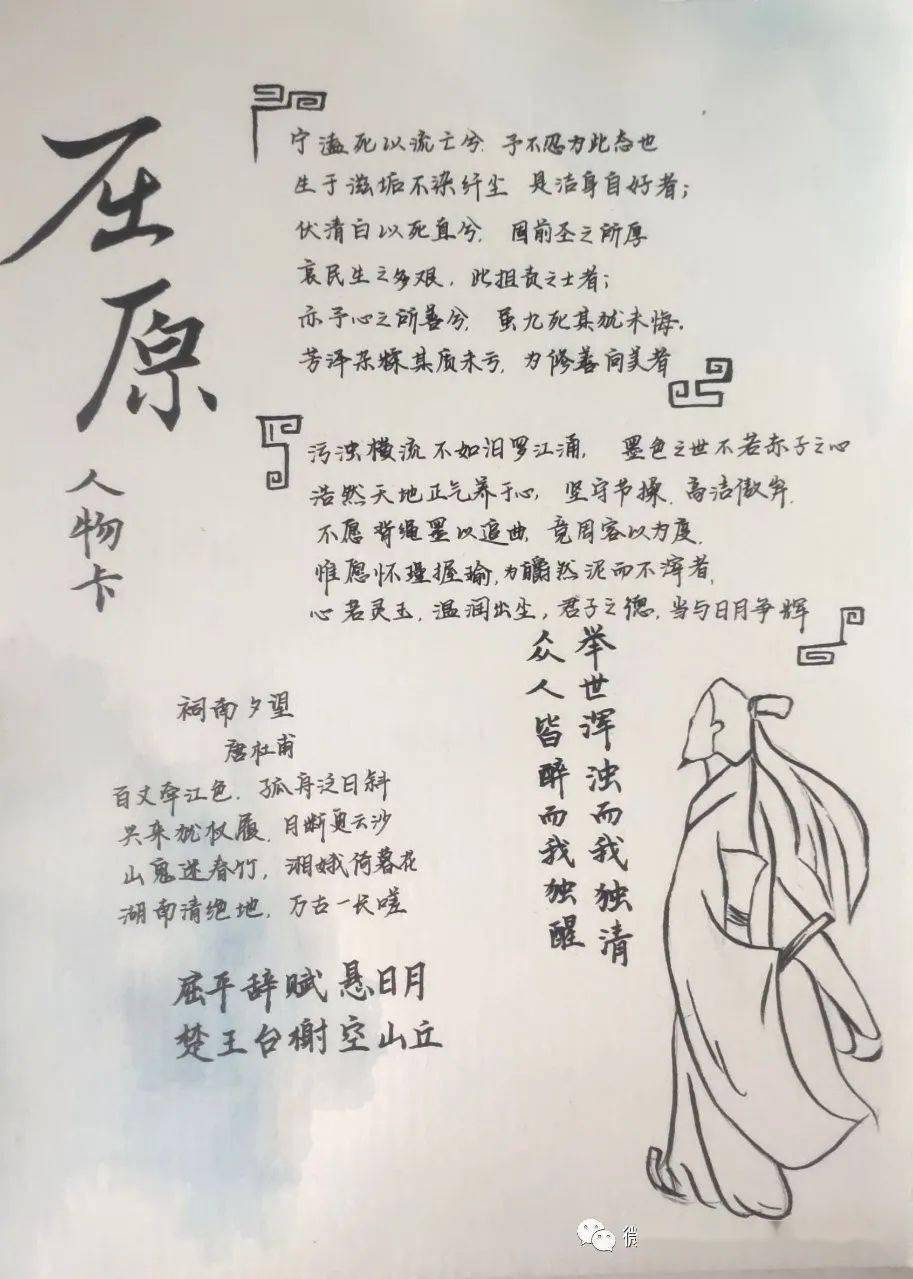 屈原
人物卡
宁溘死以流亡兮，予不忍为此态也
生于滋垢不染纤尘 是洁身自好者；
伏清白以死直兮，固前圣之所厚
哀民生之多艰，此担责之士者；
亦予心之所善兮，虽九死其犹未悔．
芳泽杂糅其质未亏，为修善向美者
污浊横流不如汨罗江涌， 墨色之世不若赤子之心
浩然天地正气养于心，坚守节操，高洁傲岸．
不愿背绳墨以追曲，竞周容以为度．
惟愿怀瑾握瑜，为皭然泥而不滓者，
心若灵玉，温润出尘，君子之德，当与日月争辉
举世浑浊而我独清
众人皆醉而我独醒
祠南夕望
唐杜甫
百丈牵江色，孤舟泛日斜
兴来犹杖屦，目断更云沙
山鬼迷春竹，湘娥倚暮花
湖南清绝地，万古一长嗟
屈平辞赋悬日月
楚王台榭空山丘
微